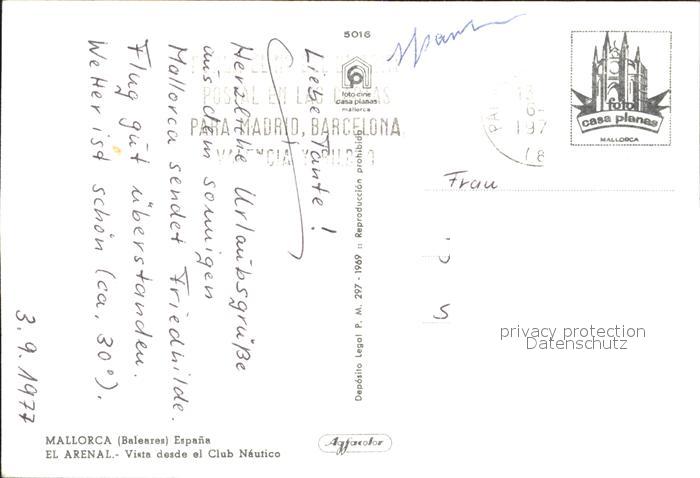 5016
Spanien
foto-cine
casa planas
mallorca
foto
casa planas
MALLORCA
POSTAL EN LAS
PARA MADRID, BARCELONA
197
Liebe Tante!
Herzliche Urlaubsgrüße
aus dem sonnigen
Mallorca sendet Friedhilde.
Flug gut überstanden.
Wetter ist schön (ca. 30°).
3.9.1977
Depósito Legal P. M. 297 - 1969 :: Reproducción prohibida
Frau
S
privacy protection
Datenschutz
MALLORCA (Baleares) España
EL ARENAL.- Vista desde el Club Náutico
Agfacolor